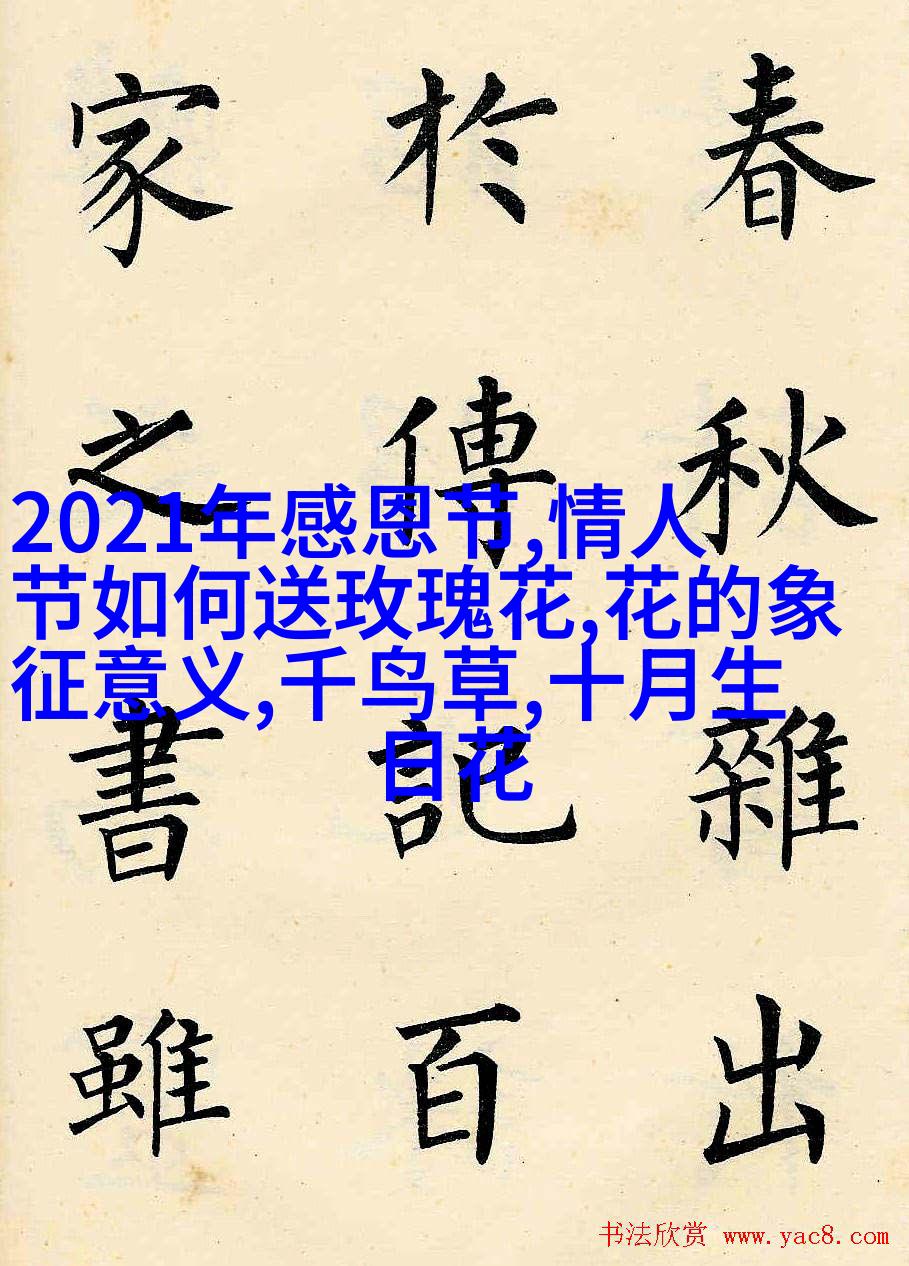 春秋雜出
於傳記百
家之書雖
2021年感恩节,情人
节如何送玫瑰花,花的象
征意义,千鸟草,十月生
日花
书法欣赏 www.yac8.com